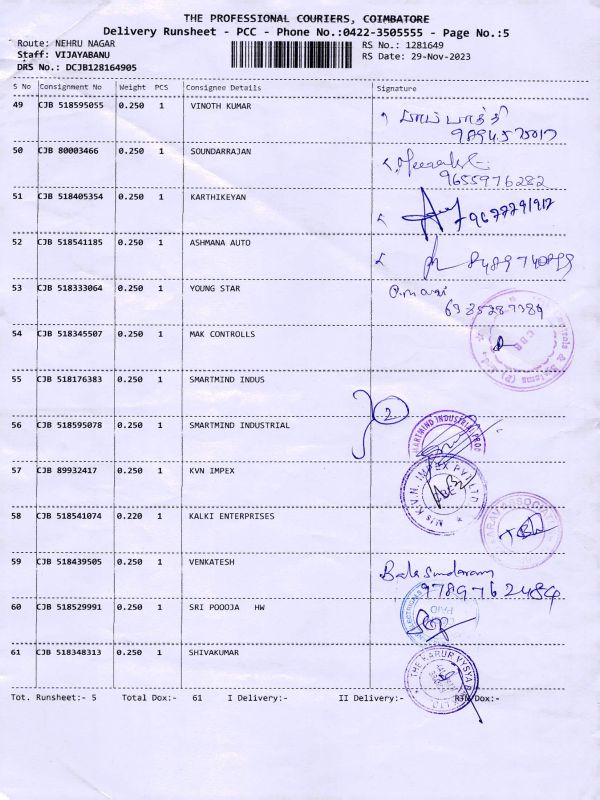 THE PROFESSIONAL COURIERS, COIMBATORE
Delivery Runsheet - PCC - Phone No.:0422-3505555 - Page No.:5
Route: NEHRU NAGAR RS No.: 1281649
Staff: VIJAYABANU RS Date: 29-Nov-2023
DRS No.: DCJB128164905
S No Consignment No Weight PCS Consignee Details Signature
49 CJB 518595055 0.250 1 VINOTH KUMAR
50 CJB 80003466 0.250 1 SOUNDARRAJAN
9655976282
51 CJB 518405354 0.250 1 KARTHIKEYAN
52 CJB 518541185 0.250 1 ASHMANA AUTO
53 CJB 518333064 0.250 1 YOUNG STAR
54 CJB 518345507 0.250 1 MAK CONTROLLS
55 CJB 518176383 0.250 1 SMARTMIND INDUS
2
56 CJB 518595078 0.250 1 SMARTMIND INDUSTRIAL
SMARTMIND INDUSTRIAL PROD
57 CJB 89932417 0.250 1 KVN IMPEX
M/s K.V.N. IMPEX PVT LTD
58 CJB 518541074 0.220 1 KALKI ENTERPRISES
59 CJB 518439505 0.250 1 VENKATESH
Bala Sundaram
9789762484
60 CJB 518529991 0.250 1 SRI POOOJA HW
61 CJB 518348313 0.250 1 SHIVAKUMAR
THE KARUR VYSYA BANK LTD
Tot. Runsheet:- 5 Total Dox:- 61 I Delivery:- II Delivery:- RTN Dox:-